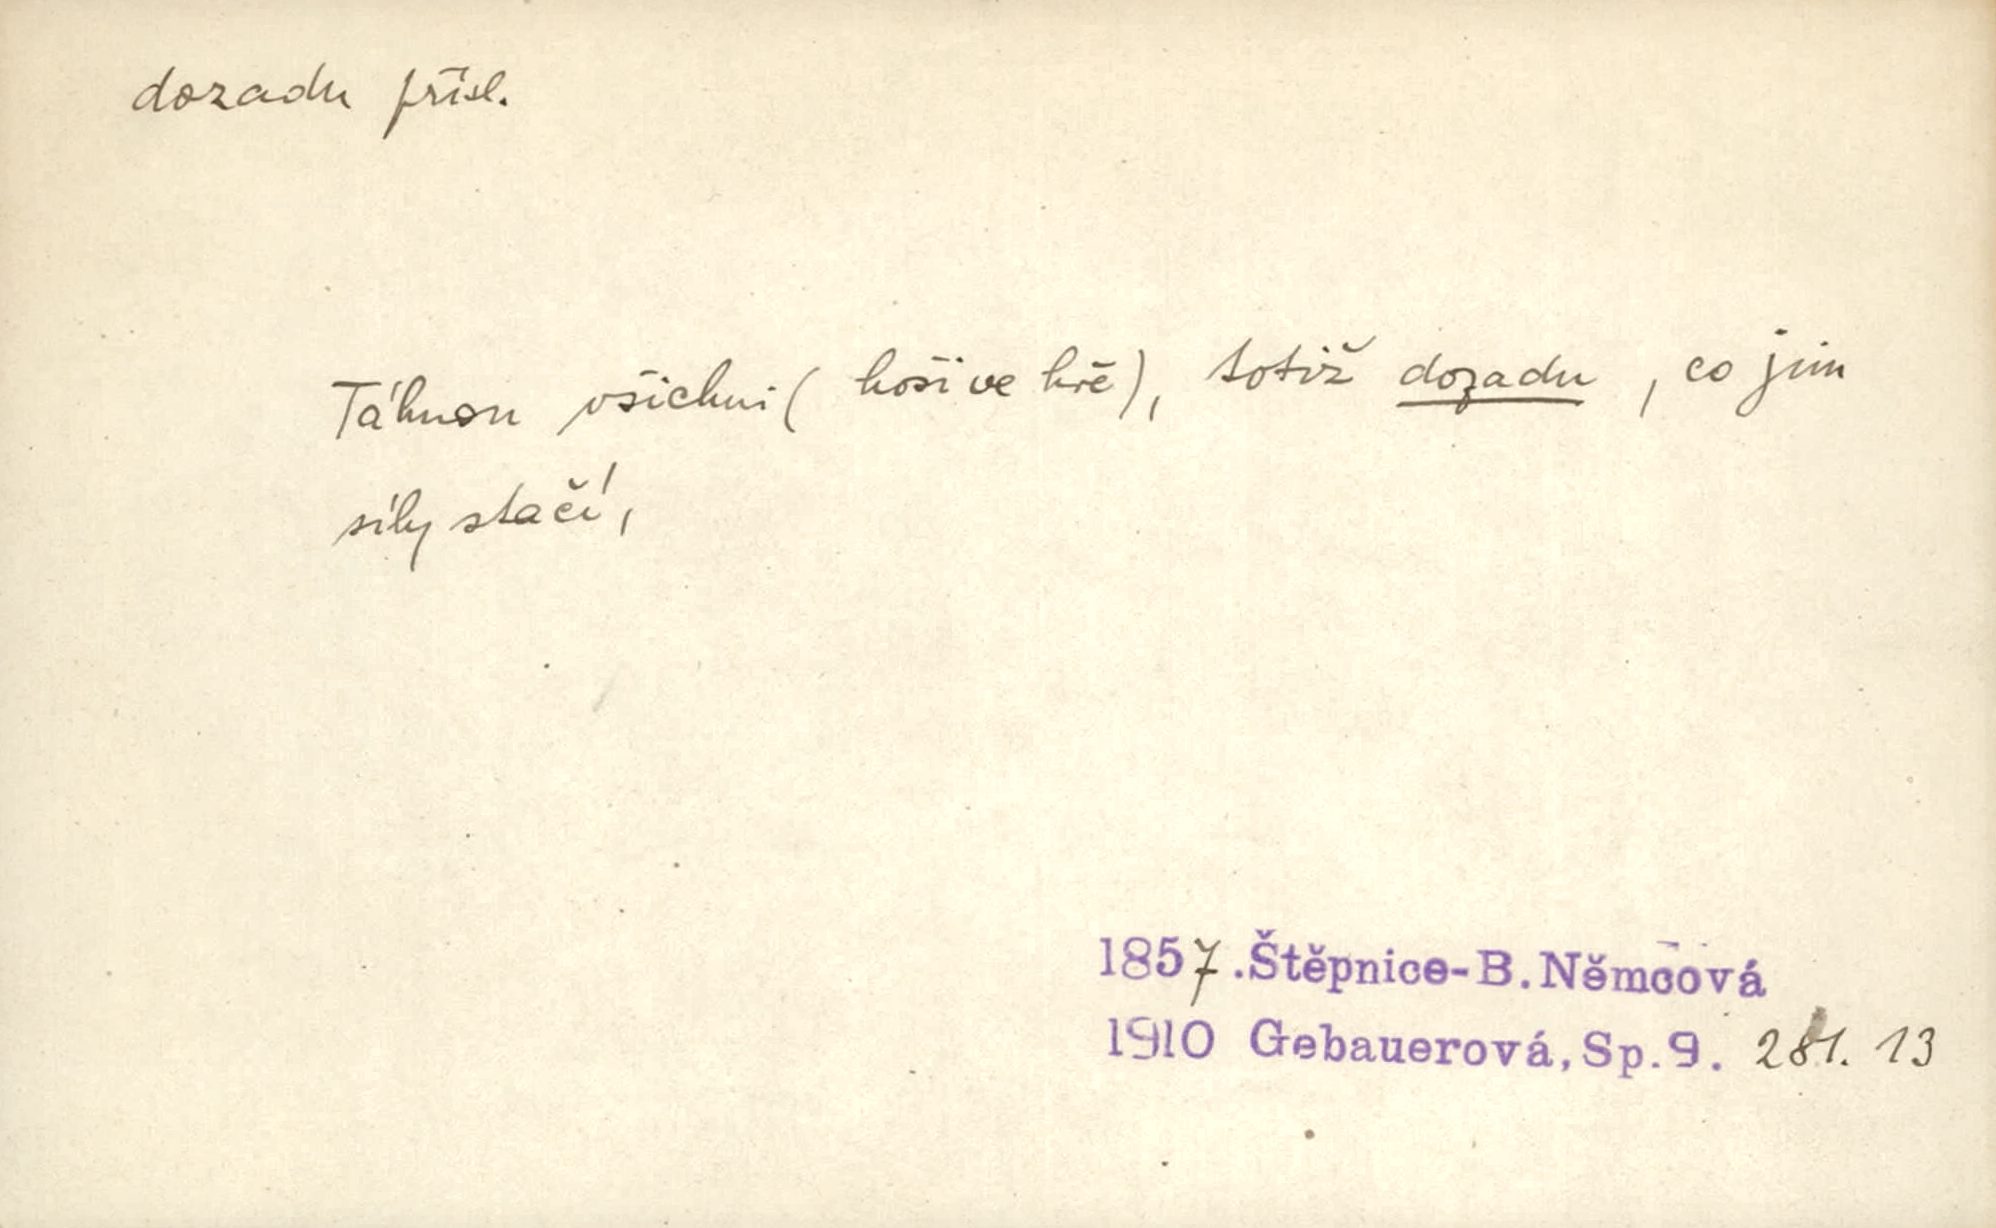 dozadu přísl.
Táhnou všichni ( hoši ve hře), totiž dozadu , co jim
síly stačí,
1857.Štěpnice-B.Němcová
1910 Gebauerová,Sp.9. 281. 13